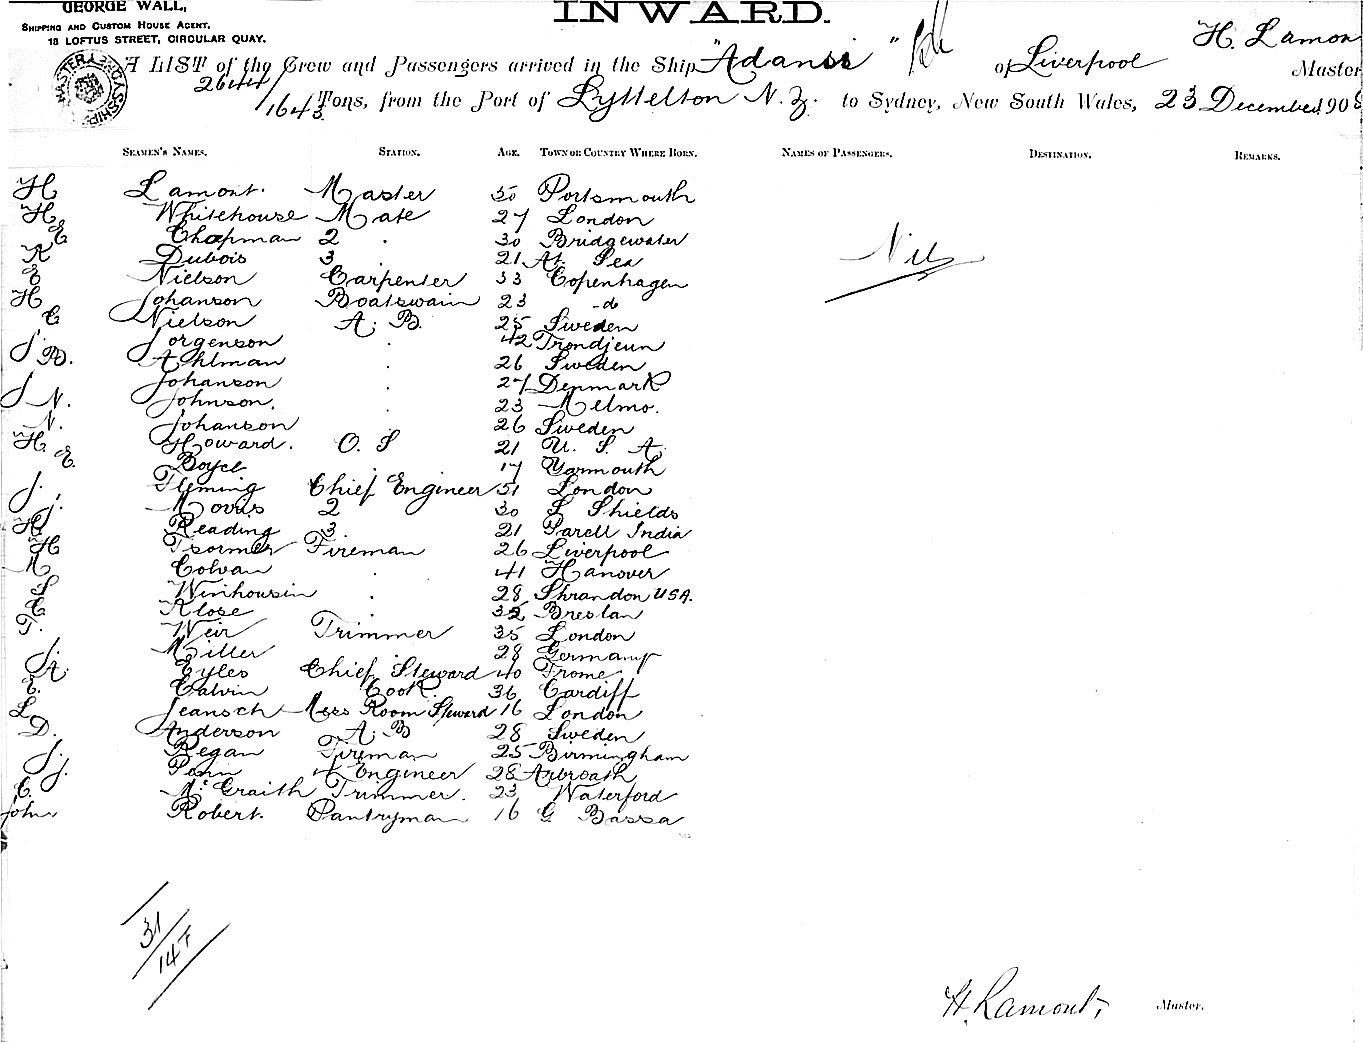 GEORGE WALL,
SHIPPING AND CUSTOM HOUSE AGENT,
18 LOFTUS STREET, CIRCULAR QUAY.
INWARD.
A LIST of the Crew and Passengers arrived in the Ship "Adansi" of Liverpool H. Lamon Master
2644/1643 Tons, from the Port of Lyttelton N. Z. to Sydney, New South Wales, 23 December 190
SEAMEN'S NAMES. STATION. AGE. TOWN OR COUNTRY WHERE BORN. NAMES OF PASSENGERS. DESTINATION. REMARKS.
H Lamont. Master 50 Portsmouth
H. Whitehouse Mate 27 London
E Chapman 2 . 30 Bridgewater
K Dubois 3 . 21 At Sea
E Nielson Carpenter 33 Copenhagen
H Johanson Boatswain 23 - do
C Nielson A. B. 25 Sweden
J. Jorgenson . 42 Trondjeun
B. Ahlman . 26 Sweden
J Johanson . 27 Denmark
N. Johnson. . 23 Melmo.
N. Johanson 26 Sweden
H. Howard. O. S 21 U. S. A.
E. Boyce 17 Yarmouth
J. Fleming Chief Engineer 51 London
J. Morris 2 30 S Shields
H Reading 3 21 Parell India
H Fireman 26 Liverpool
M Colvan . 41 Hanover
S Winhousin . 28 Shrandon USA.
C Klose 32 Breslan
T. Weir Trimmer 35 London
Miller 28 Germany
A. Eyles Chief Steward 40 Frome
E. Calvin Cook 36 Cardiff
L Jeansch Mess Room Steward 16 London
D. Anderson A. B 28 Sweden
J. Regan Fireman 25 Birmingham
J. 4 Engineer 28 Arbroath
C. McCraith Trimmer. 23 Waterford
John Robert. Pantryman 16 G Bassa
Nil
31/147
H. Lamont, Master.